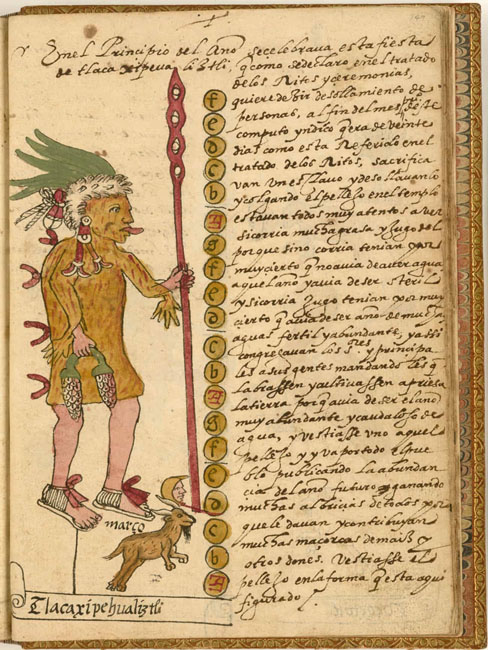 En el Principio del Año se celebrava esta fiesta
de tlaca xipeva liztli, q como se declaro en el tratado
de los Ritos y ceremonias,
quiere dezir desollamiento de
personas, al fin del mes
computo yndico q era de veinte
dias como esta Referido en el
tratado de los Ritos, sacrifica
van un esclavo y desollavanlo
y colgando el pellejo en el templo
estavan todos muy atentos a ver
si corria mucha grasa y jugo del
porque si no corria tenian por
muy cierto q no avia de aver agua
aquel año y avia de ser steril
y si corria jugo tenian por muy
cierto q avia de ser año de muchas
aguas fertil y abundante, y assi
congregavan los s.res y principa
les a sus gentes mandando les q
labrassen y cultivassen apriesa
la tierra porq avia de ser el año
muy abundante y caudaloso de
agua, y vestiasse uno aquel
pellejo y yva por todo el pue
blo publicando la abundan
cia del año futuro ganando
muchas albricias de todos por
que le davan y contribuyan
muchas maçorcas de maiz y
otros dones. Vestiasse el
pellejo en la forma q esta aqui
figurado
f
e
d
c
b
A
g
f
e
d
c
b
A
g
f
e
d
c
b
A
março
Tlacaxipehualiztli